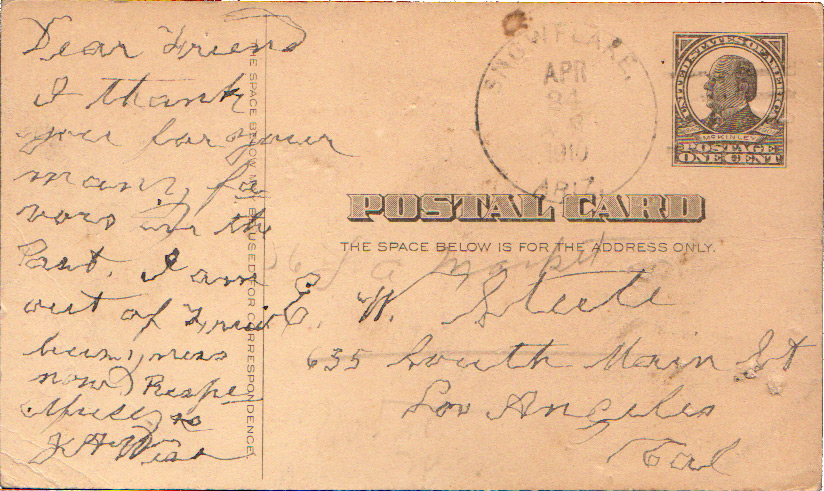 Dear Friend
I thank
you for your
many fa
vors in the
Past. I am
out of Fruit
busyness
now Respe
J A Wiss
THE SPACE BELOW MAY BE USED FOR CORRESPONDENCE.
SNOWFLAKE,
APR
24
1910
ARIZ.
UNITED STATES OF AMERICA
McKINLEY
POSTAGE
ONE CENT
POSTAL CARD
THE SPACE BELOW IS FOR THE ADDRESS ONLY.
Market
E. W. Steele
635 South Main St
Los Angeles
Cal